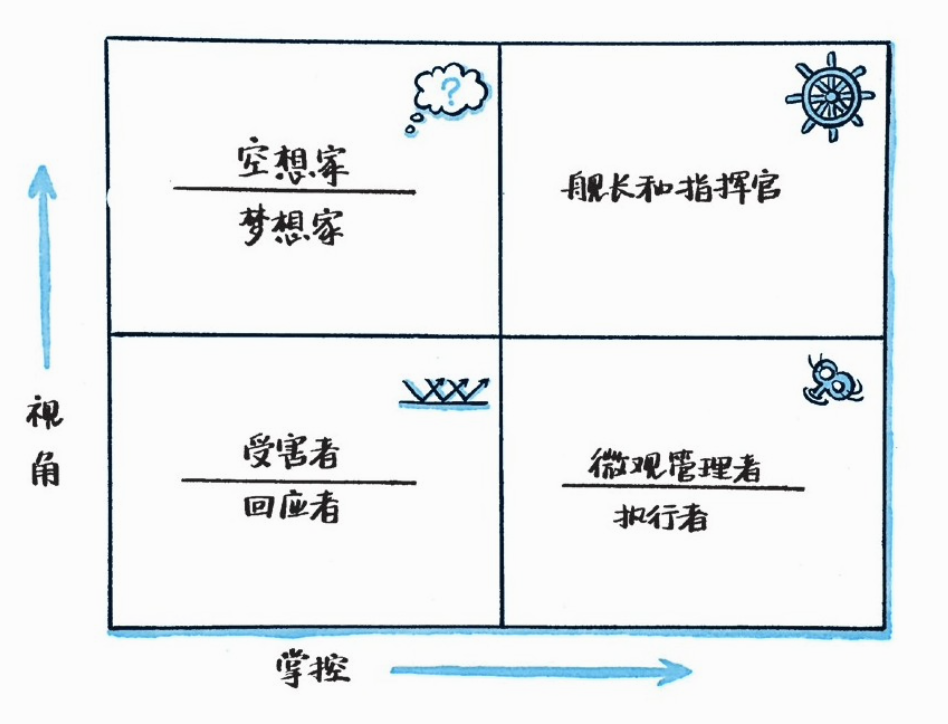 ?
空想家
梦想家
舰长和指挥官
视
角
受害者
回应者
微观管理者
执行者
掌控